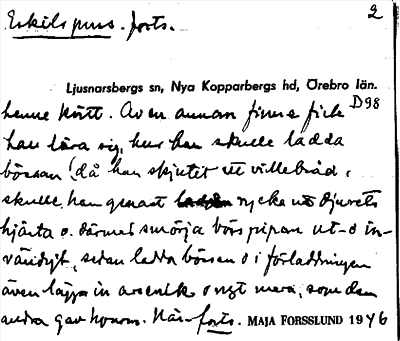 Eskils puss. forts. 2
Ljusnarsbergs sn, Nya Kopparbergs hd, Örebro län.
henne kött. Av en annan finne fick D98
han lära sig, hur han skulle ladda
bössan; då han skjutit ett villebråd,
skulle han genast rycka ut djurets
hjärta o. därmed smörja börspipan ut- o in-
vändigt, sedan ladda börsan o i förladdningen
även lägga in arsenik o ngt mera, som den
andra gav honom. När forts. MAJA FORSSLUND 1946